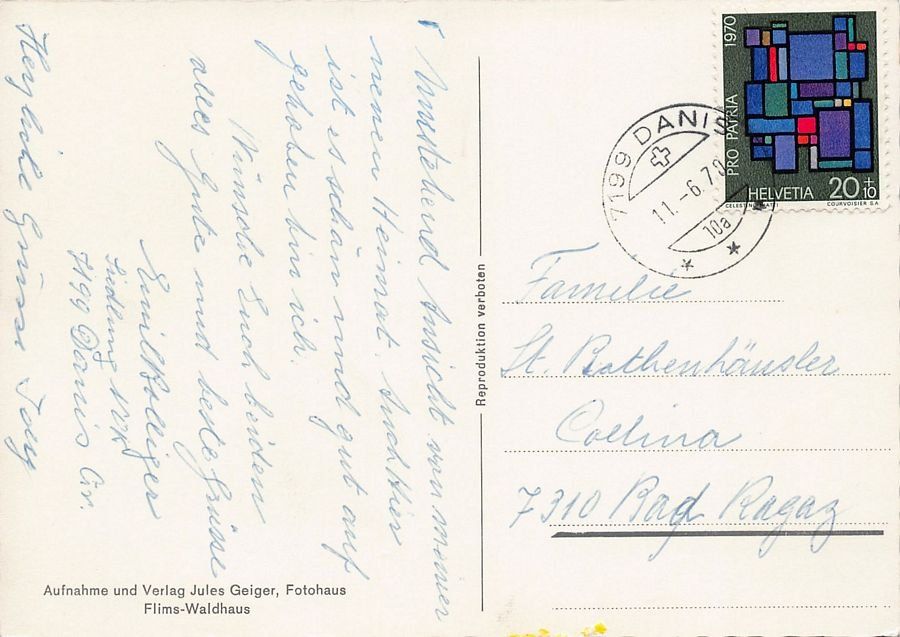 Umstehend Ansicht von meiner
neuen Heimat. Auch Hier
ist es schön und gut auf
gehoben bin ich.
Wünsche Euch beiden
alles Gute und beste Grüsse
Emil Bolliger
Siedlung NOK
7199 Danis Gr.
Herzliche Grüsse
Aufnahme und Verlag Jules Geiger, Fotohaus
Flims-Waldhaus
Reproduktion verboten
PRO PATRIA 1970
HELVETIA 20+10
COURVOISIER S A
7199 DANIS
11.-6.70
10a
Familie
St. Rothenhäusler
Collina
7310 Bad Ragaz